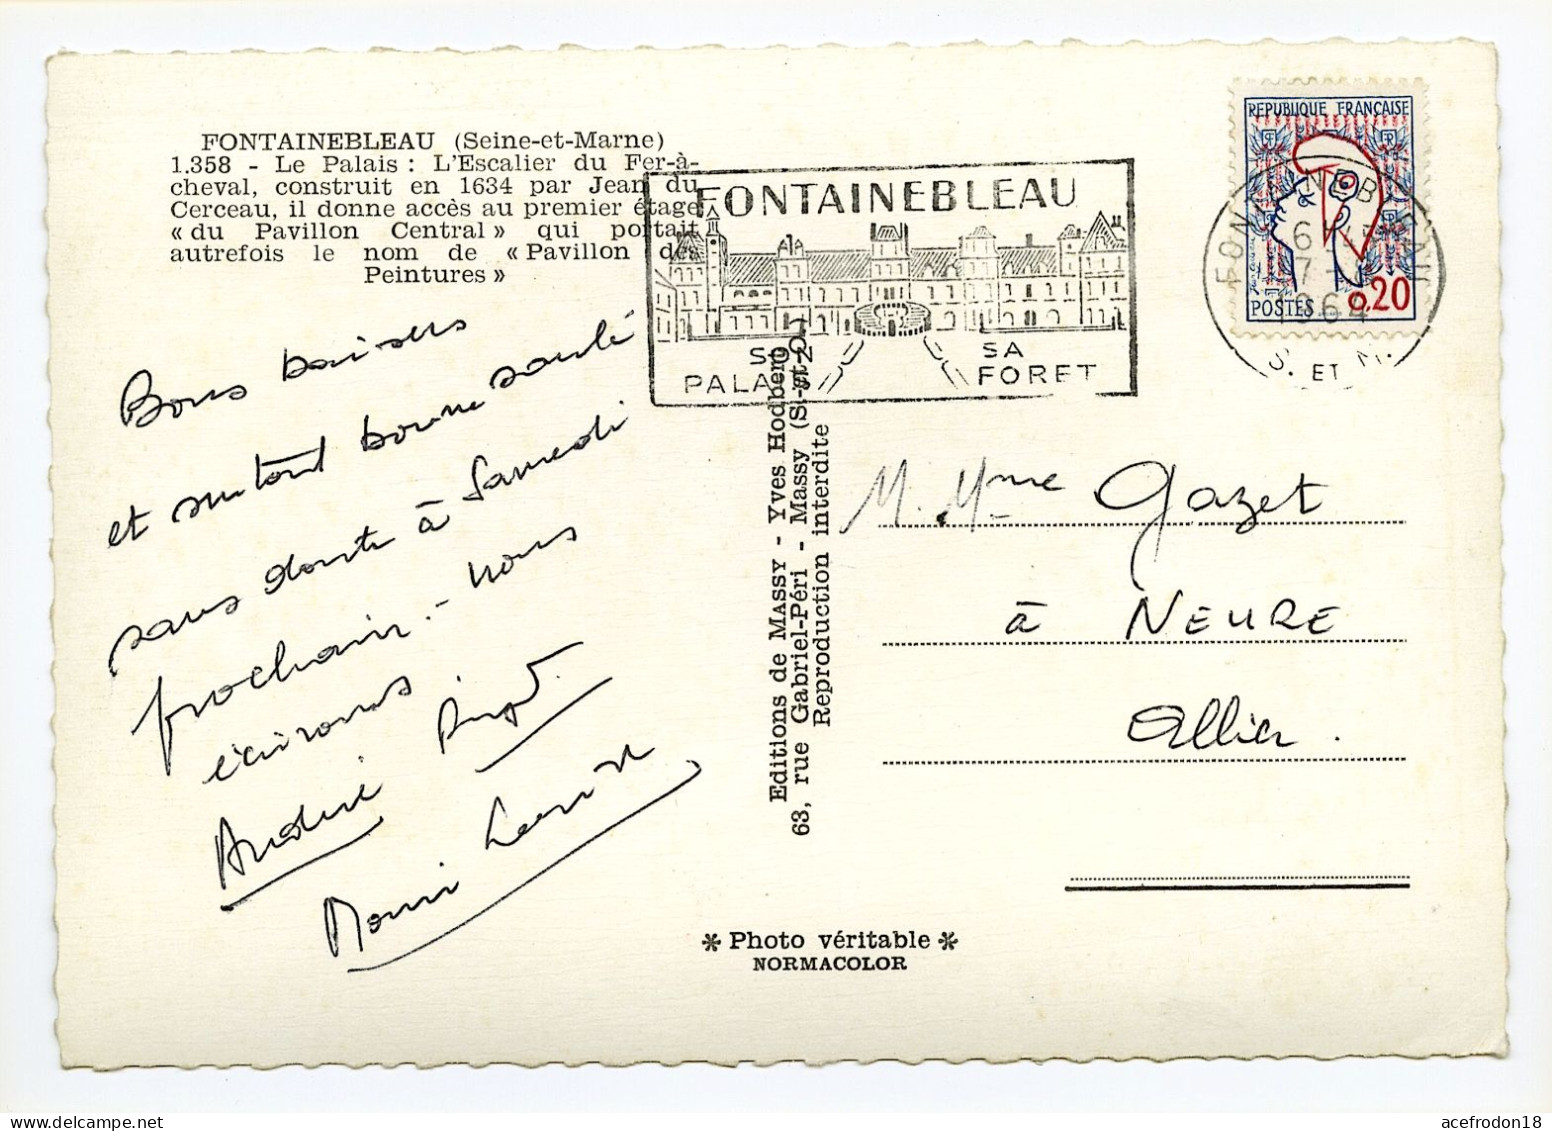 FONTAINEBLEAU (Seine-et-Marne)
1.358 - Le Palais : L'Escalier du Fer-à-
cheval, construit en 1634 par Jean du
Cerceau, il donne accès au premier étage
« du Pavillon Central » qui portait
autrefois le nom de « Pavillon des
Peintures »
Bons baisers
et surtout bonne santé
sans doute à Samedi
prochain - nous
écrirons
André
FONTAINEBLEAU
SON
PALAIS
SA
FORET
REPUBLIQUE FRANÇAISE
POSTES 0,20
FONTAINEBLEAU
1964
S. ET M.
Editions de MASSY - Yves Hodbert
63, rue Gabriel-Péri - Massy (S.-et-O.)
Reproduction interdite
M. Mme Gazet
à NEURE
Allier.
* Photo véritable *
NORMACOLOR
acefrodon18